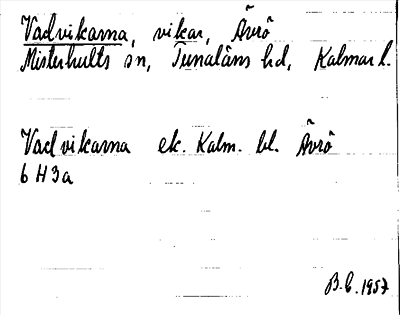 Vadvikarna, vikar, Ävrö
Misterhults sn, Tunaläns hd, Kalmar l.
Vadvikarna ek. Kalm. bl. Ävrö
6 H 3a
B.C. 1957